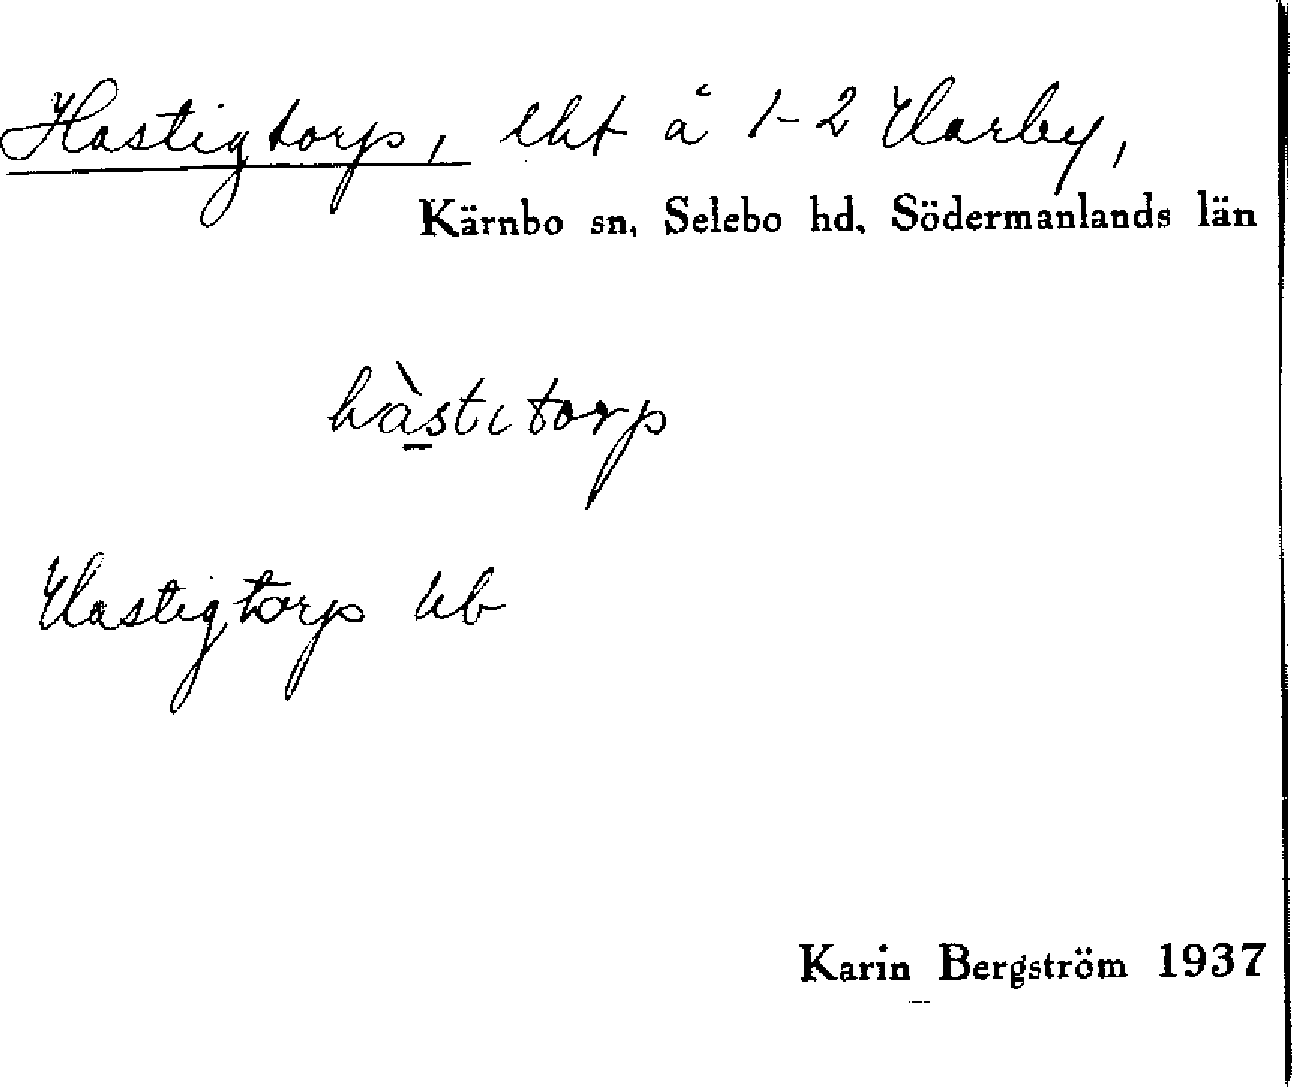 Hastigtorp, lht å 1-2 Harby,
Kärnbo sn, Selebo hd, Södermanlands län
hàstitorp
Hastigtorp hb
Karin Bergström 1937